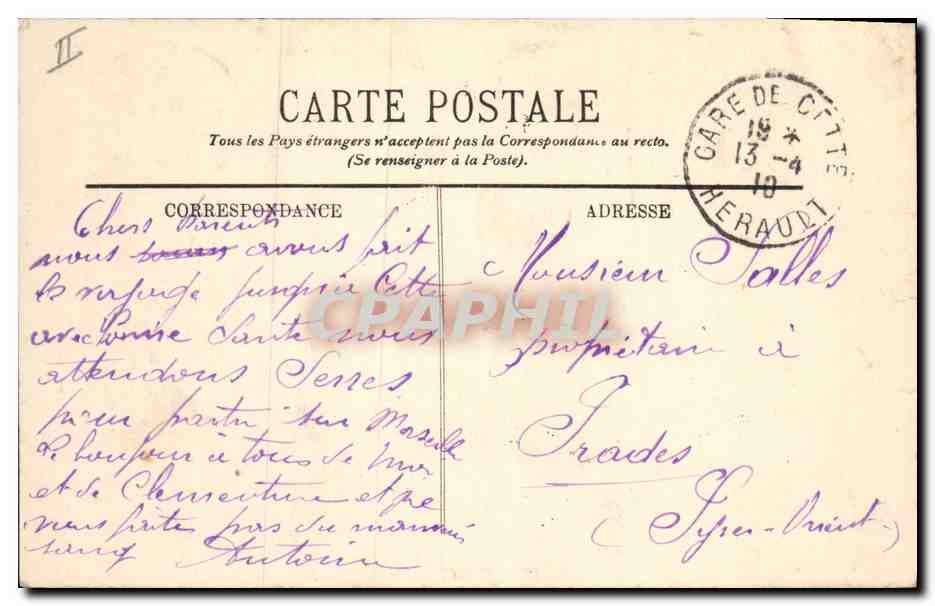 II
CARTE POSTALE
Tous les Pays étrangers n'acceptent pas la Correspondance au recto.
(Se renseigner à la Poste).
GARE DE CETTE
19 *
13 -4
10
HERAULT
CORRESPONDANCE
Chers Parents
nous avons fait
le voyage jusqu'à Cette
avec bonne Santé nous
attendons Serres
pour partir sur Marseille
Le bonjour à tous de moi
et de Clementine et ne
vous faite pas du mauvais
sang Antoine
ADRESSE
Monsieur Salles
propriétaire à
Prades
(Pyren-Orient-)
CPAPHIL